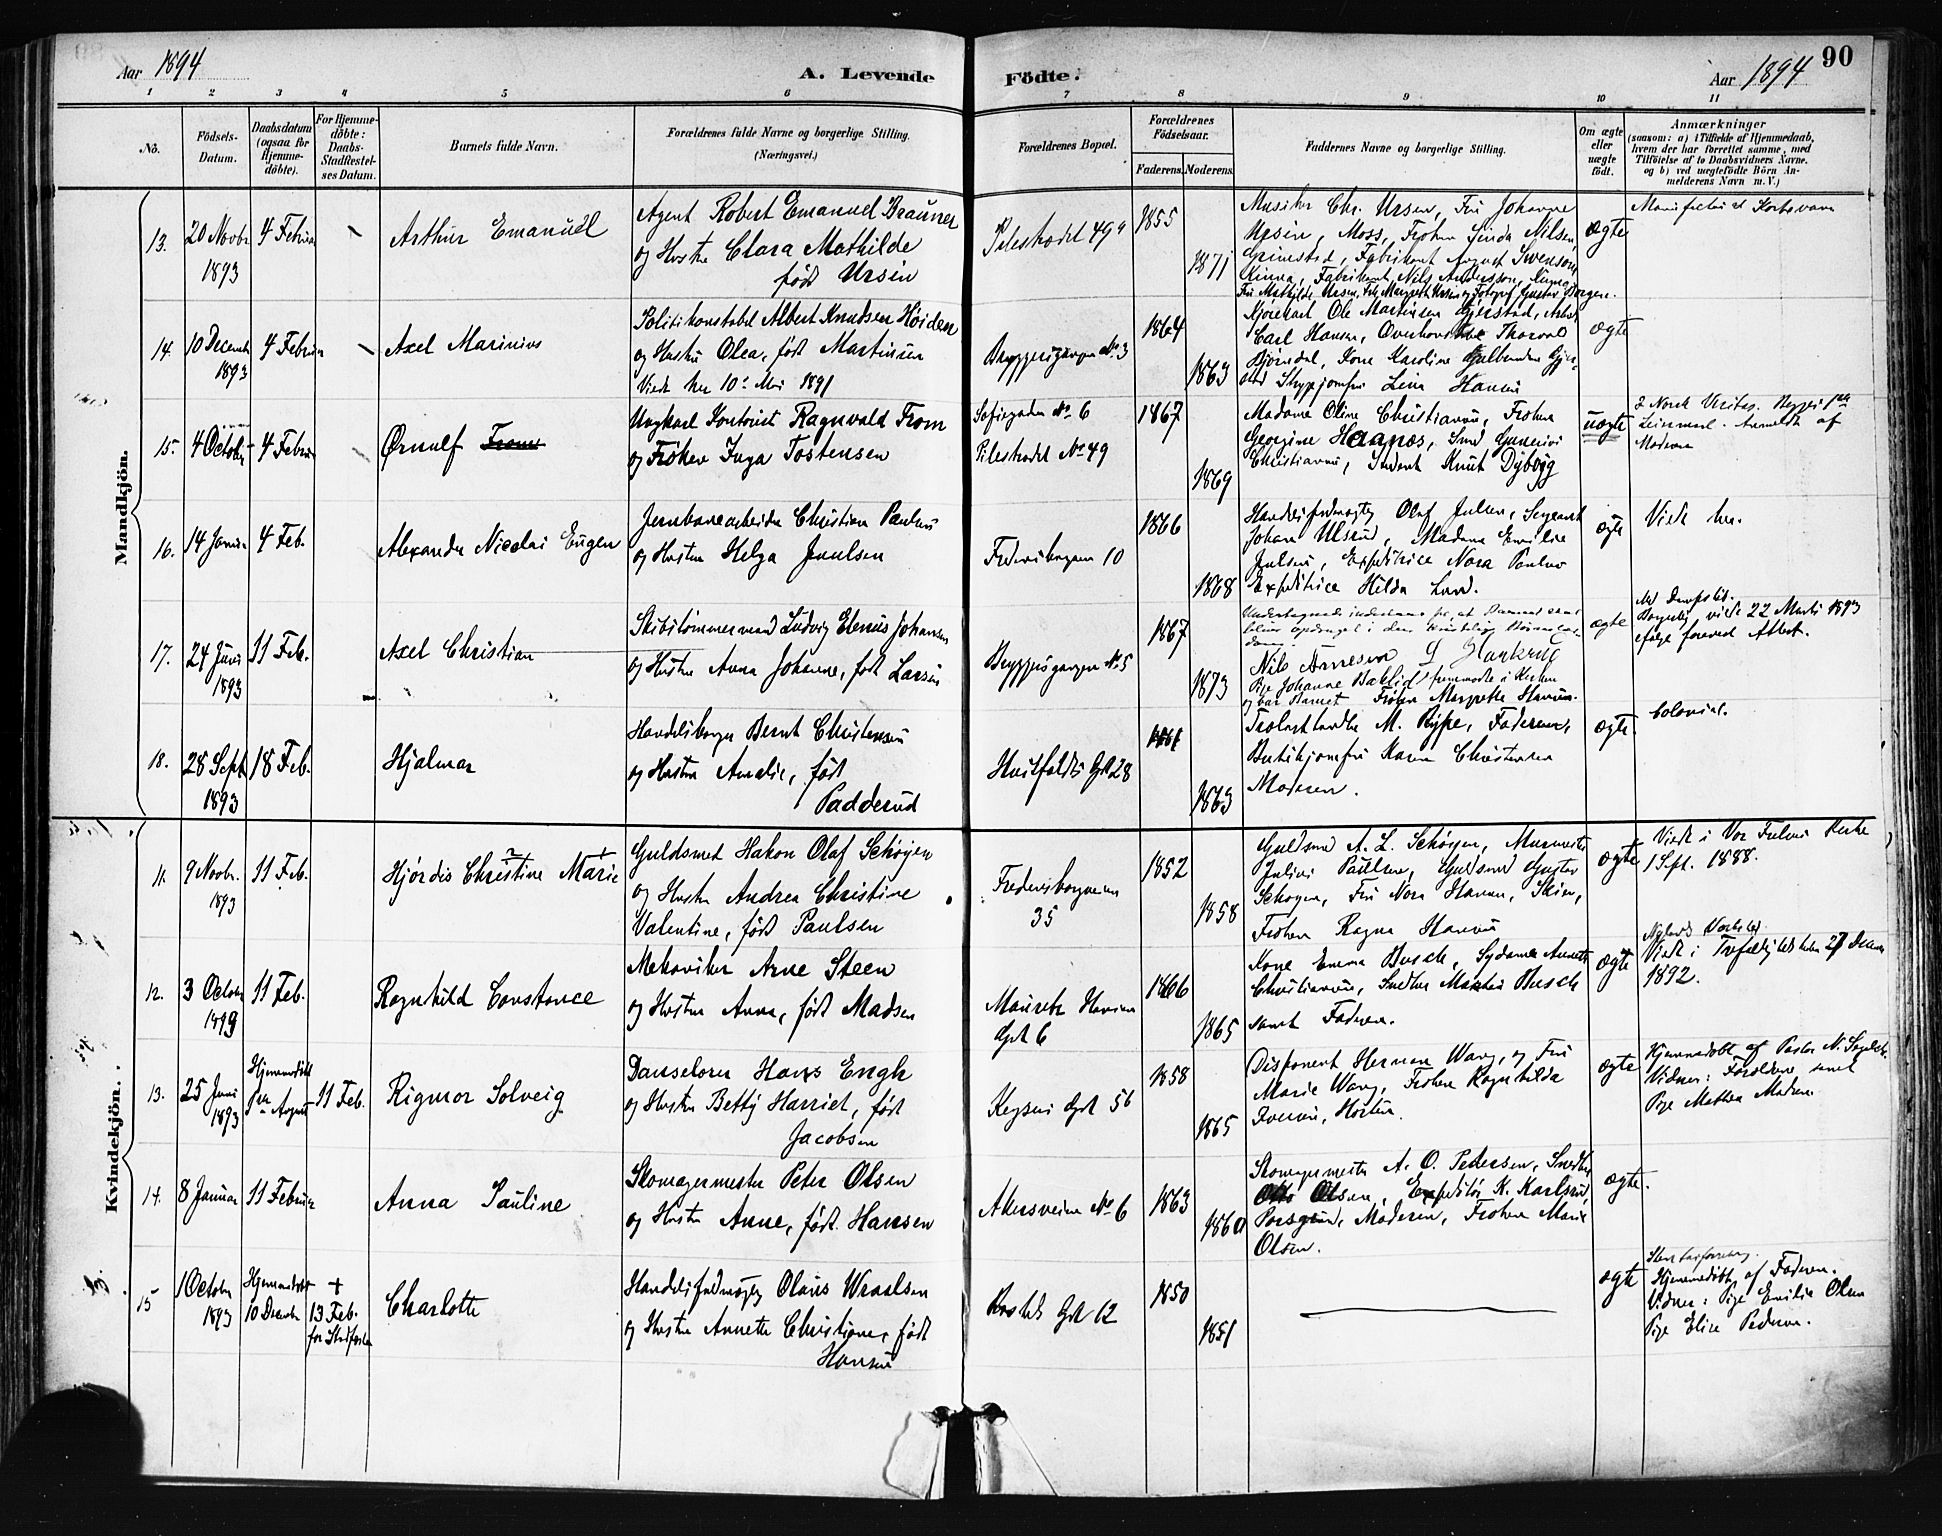 Aar 1894
A. Levende
Födte.
Aar 1894
90
1 2 3 4 5 6 7 8 9 10 11
No.
Födsels-
Datum.
Daabsdatum
(ogsaa for
Hjemme-
döbte).
For Hjemme-
döbte:
Daabs-
Stadfestel-
ses Datum.
Barnets fulde Navn.
Forældrenes fulde Navne og borgerlige Stilling.
(Næringsvei.)
Forældrenes Bopæl.
Forældrenes
Födselsaar.
Faderens.
Moderens.
Faddernes Navne og borgerlige Stilling.
Om ægte
eller
uægte
födt.
Anmærkninger
(saasom: a) i Tilfælde af Hjemmedaab,
hvem der har forrettet samme, med
Tilföielse af to Daabsvidners Navne.
og b) ved uægtefödte Börn An-
melderens Navn m. V.)
Mandkjön.
13.
20 Novbr
1893
4 Februar
Arthur Emanuel
Agent Robert Emanuel Brauner
og Hustru Clara Mathilde
født Ursin
Pilestrædet 49
1855
1871
Musiker Chr. Ursin, Fru Johanne
Ursin, Moss, Frøken Nilsen,
Grimstad, Fabrikant August Svenson
Kinna, Fabrikant Nils Andersson, Kinna
Fru Mathilde Ursin, Frk. Margreth Ursin og Fotograf Gustav Borgen.
ægte
14.
10 Decembr
1893
4 Februar
Axel Marinius
Politikonstabel Albert Knudsen Høiden
og Hustru Olea, født Martinsen
Viede her 10de Mai 1891
Bryggerigangen No. 3
1864
1863
Kjørekarl Ole Martinsen Gjerstad, Arbeid.
Carl Hansen, Thorvald
Bjørndal, Kone Karoline Gulbrandsen Gjer-
stad Strygejomfru Lina Hansen
ægte
15.
4 October
4 Februar
Ørnulf From
Ungkarl Kontorist Ragnvald From
og Frøken Inga Tostensen
Sofiegaden No. 6
Pilestrædet No 49
1867
1869
Madame Oline Christiansen, Frøken
Georgine Haanæs, Smed
Christiansen, Student Knut Dybvig
uægte
2 Norsk Veritas.
Anmeldt af
Moderen
16.
14 Januar
4 Feb.
Alexander Nicolai Eugen
Jernbanearbeider Christian Paulsen
og Hustru Helga Juulsen
Fredensborgveien 10
1866
1868
Handelsfuldmægtig Olaf Julsen, Sergeant
Johan Ulsrud, Madame Emilie
Julsen, Expeditrice Nora Paulsen
Expeditrice Hilda Lund.
ægte
Viede her.
17.
24 Juni
1893
11 Feb.
Axel Christian
Skibstømmermand Ludvig Elenius Johansen
og Hustru Anna Johanne, født Larsen
Bryggerigangen No. 5
1867
1873
Undertegnede indestaar for, at Barnet skal
blive opdraget i den kristelige Børnelær-
dom.
Nils Arnesen
Pige Johanne Bæklid fremmødte i Kirken
og bar Barnet Frøken Margrethe Hansen.
ægte
Borgerlig viede 22 Marts 1893
ifølge forevist Attest.
18.
28 Sept.
1893
18 Feb.
Hjalmar
Handelsborger Bernt Christensen
og Hustru Amalie, født
Padderud
Huitfeldts Gd. 28
1861
1863
M. Rype, Faderen,
Butikjomfru Karen Christensen
Moderen.
ægte.
Colonial.
Kvindekjön.
11.
9 Novbr.
1893
11 Feb.
Hjørdis Christine Marie
Guldsmed Hakon Olaf Schøyen
og Hustru Andrea Christine
Valentine, født Paulsen
Fredensborgveien
35
1852
1858
Guldsmed A. L. Schøyen, Murmester
Julius Paulsen, Guldsmed Gustav
Schøyen, Fru Nora Hansen, Skien,
Frøken Ragna Hansen
ægte
Viede i Vor Frelsers Kirke
1 Sept. 1888.
12.
3 October
11 Feb.
Ragnhild Constance
Mekaniker Arne Steen
og Hustru Anna, født Madsen
Mauritz Hansens
Gd. 6
1866
1865
Kone Emma Busch, Sydame Annette
Christiansen, Snedker Busch
samt Faderen.
ægte
Nylands Værksted.
Viede i Trefoldighedskirken 27 Decem
1892.
13.
25 Juni
1893
Hjemmedøbt
August
11 Feb.
Rigmor Solveig
Danselærer Hans Engh
og Hustru Betty Harriet, født
Jacobsen
Keysers Gd. 5b
1858
1865
Disponent Herman Wang, og Fru
Marie Wang, Frøken Ragnhilda
Iversen, Horten.
ægte
Hjemmedøbt af Pastor N.
Vidner: Forældrene samt
Pige Mathea Madsen.
14.
8 Januar
11 Februar
Anna Pauline
Skomagermester Peter Olsen
og Hustru Anne, født Hansen
Akersveien No 6
1863
1860
Skomagermester A. O. Pedersen, Snedker
Otto Olsen, Expeditør K. Karlsen,
Porsgrund, Moderen, Frøken Marie
Olsen.
ægte.
15
1 October
1893
Hjemmedøbt
10 December
+
13 Feb.
før Stadfæstn
Charlotte
Handelsfuldmægtig Olaus Wraalsen
og Hustru Annette Christiane, født
Hansen
Gd. 62
1850
1851
ægte
Hjemmedøbt af Faderen.
Vidner: Pige Emilie Olsen
Pige Elise Pedersen.